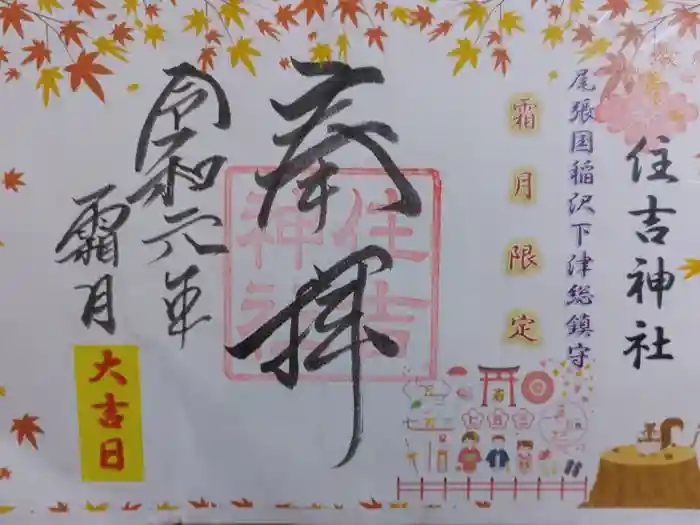 住吉神社
尾張国稲沢下津総鎮守
霜月限定
奉拝
住吉神社
令和元年
霜月
大吉日
七五三